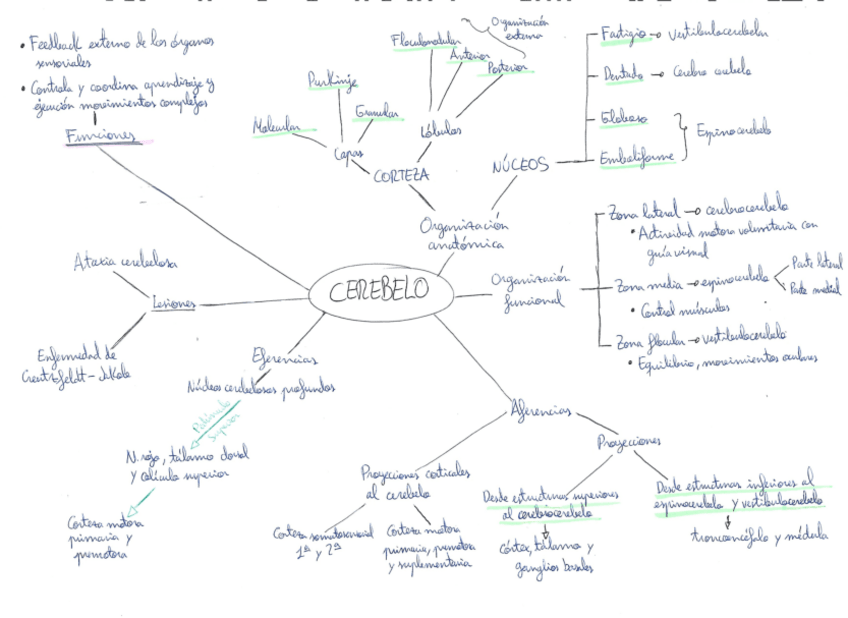 • Feedback externo de los órganos
sensoriales
• Controla y coordina aprendizaje y
ejecución movimientos complejos
Funciones
Organización
externa
Floculonodular
Anterior
Posterior
Purkinje
Granular
Molecular
Lóbulos
Capas
CORTEZA
Organización
anatómica
NÚCLEOS
Fastigio → vestibulocerebelo
Dentado → Cerebro cerebelo
Globoso
Emboliforme
Espinocerebelo
CEREBELO
Organización
funcional
Zona lateral → cerebrocerebelo
• Actividad motora voluntaria con
guía visual
Zona media → espinocerebelo
Parte lateral
Parte medial
• Control músculos
Zona flocular → vestibulocerebelo
• Equilibrio, movimientos oculares
Ataxia cerebelosa
Lesiones
Enfermedad de
Creutzfeldt-Jakob
Eferencias
Núcleos cerebelosos profundos
Pedúnculo
superior
N. rojo, tálamo dorsal
y colículo superior
Corteza motora
primaria y
premotora
Aferencias
Proyecciones corticales
al cerebelo
Corteza somatosensorial
1ª y 2ª
Corteza motora
primaria, premotora
y suplementaria
Proyecciones
Desde estructuras superiores
al cerebrocerebelo
córtex, tálamo y
ganglios basales
Desde estructuras inferiores al
espinocerebelo y vestibulocerebelo
troncoencéfalo y médula